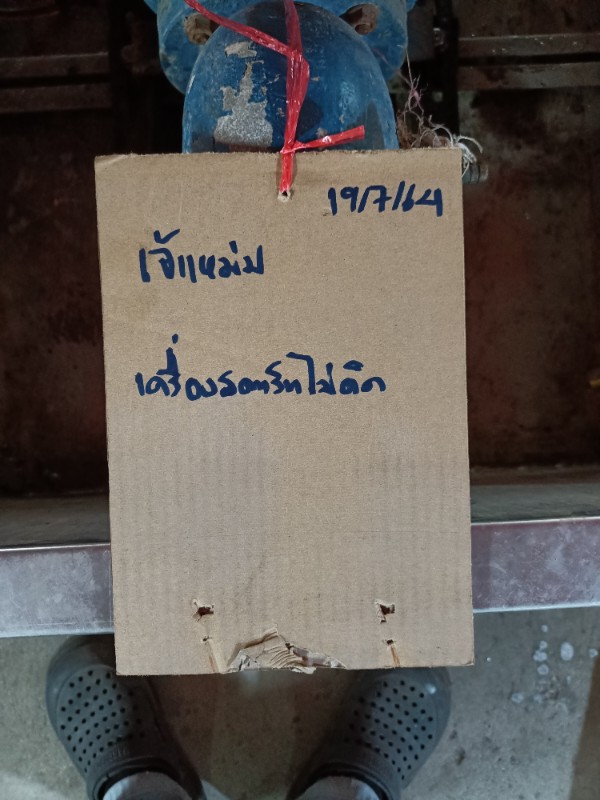 19/7/64
เจ้แหม่ม
เครื่องสตาร์ทไม่ติด